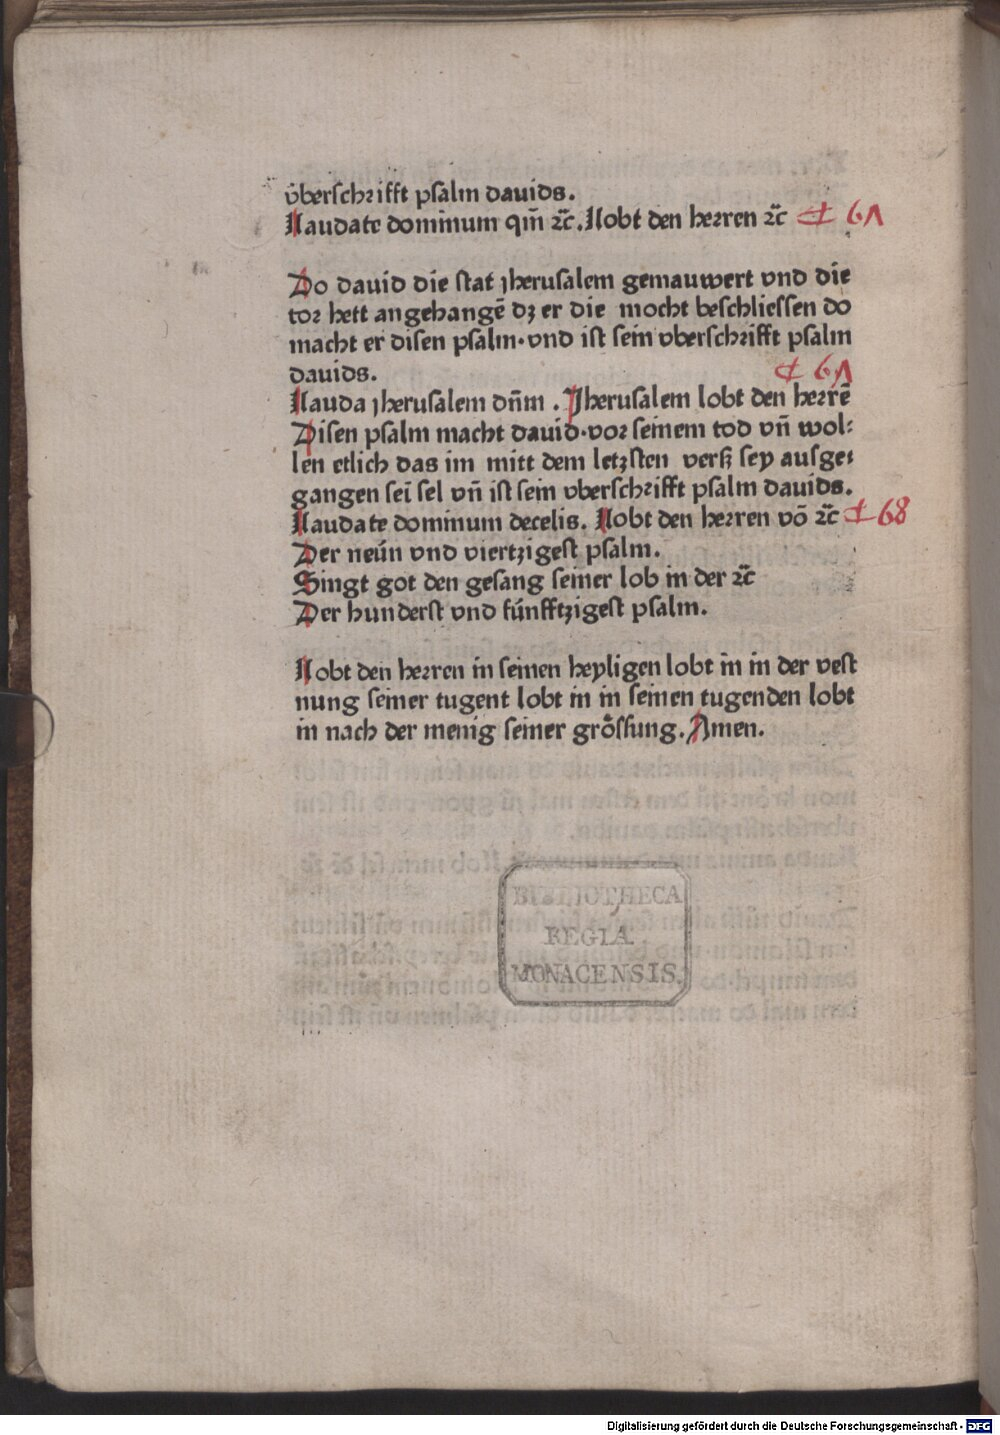 v̇berschrifft psalm dauids.
Laudate dominum qm̃ ꝛc̃. Lobt den herren ꝛc̃ ₵ 6Λ
Do dauid die stat jherusalem gemauwert vnd die
tor hett angehangẽ dꝫ er die mocht beschliessen do
macht er disen psalm·vnd ist sein vberschrifft psalm
dauids. ₵ 6Λ
Lauda jherusalem dñm . Jherusalem lobt den herrẽ
Disen psalm macht dauid·vor seinem tod vñ wol⸗
len etlich das im mitt dem letzsten verß sey ausge⸗
gangen seĩ sel vñ ist sein vberschrifft psalm dauids.
Laudate dominum decelis. Lobt den herren võ ꝛc̃ ₵ 68
Der neún vnd viertzigest psalm.
Singt got den gesang seiner lob in der ꝛc̃
Der hunderst vnd fúnfftzigest psalm.
Lobt den herren in seinen heyligen lobt in in der vest
nung seiner tugent lobt in in seinen tugenden lobt
in nach der menig seiner grössung. Amen.
BIBLIOTHECA
REGIA
MONACENSIS.
Digitalisierung gefördert durch die Deutsche Forschungsgemeinschaft - DFG